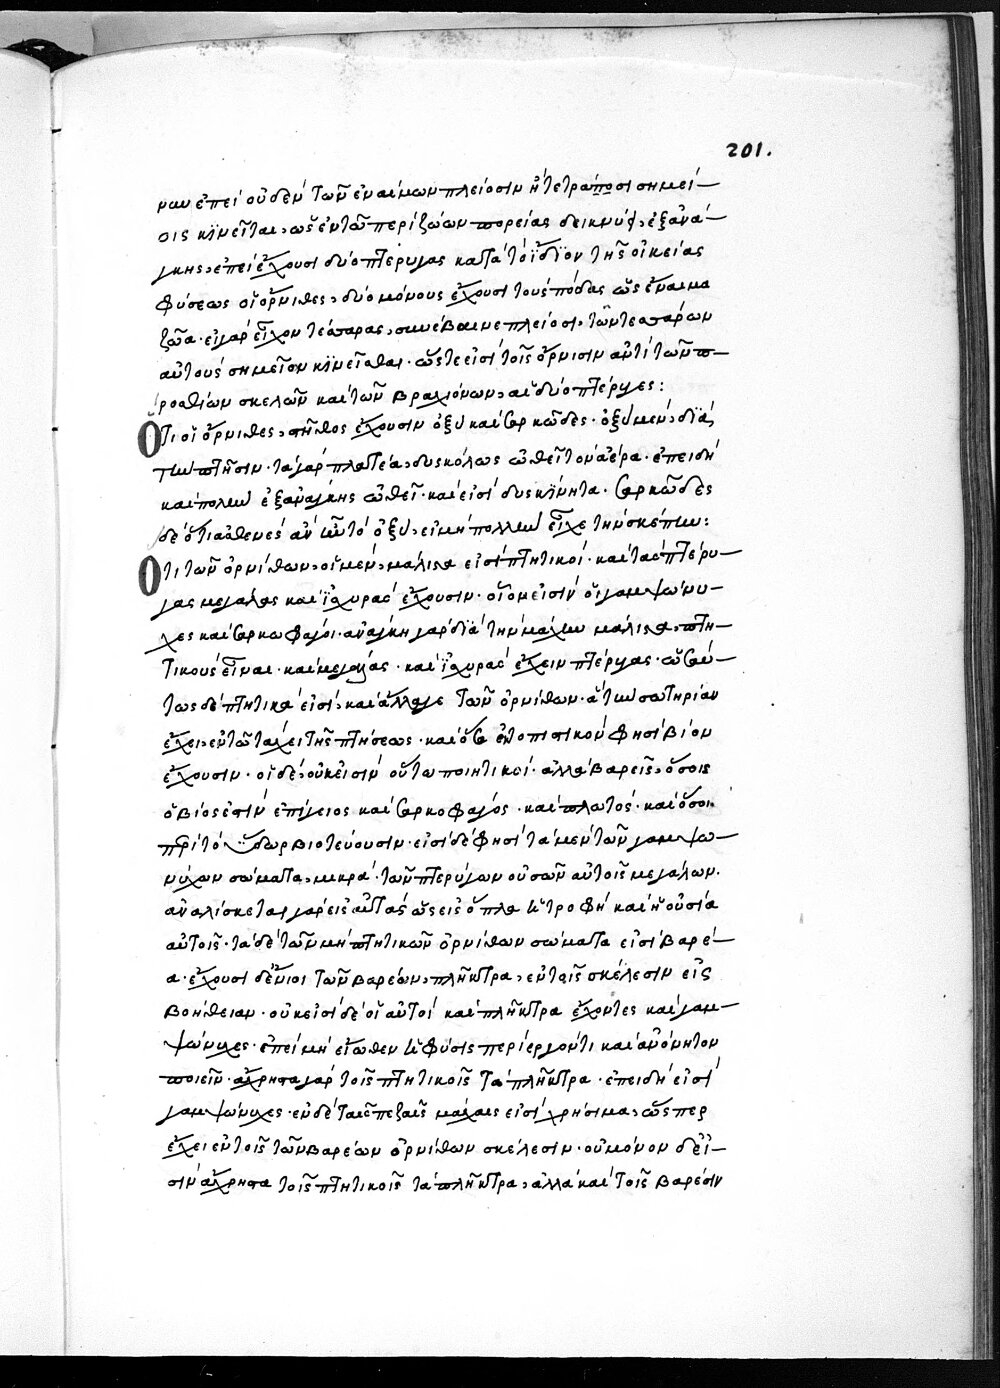 201.
ναν ἐπεὶ οὐδὲν τῶν ἐναίμων πλείοσιν ἢ τέτρασι σημεί-
οις κινεῖται, ὡς ἐν τῶ περὶ ζώων πορείας δείκνυσι, ἐξ ἀνά-
γκης, ἐπεὶ ἔχουσι δύο πτέρυγας κατὰ τὸ ἴδϊον τῆς οἰκείας
φύσεως οἱ ὄρνιθες, δύο μόνους ἔχουσι τοὺς πόδας ὡς ἔναιμα
ζῶα· εἰ γὰρ εἶχον τέσσαρας, συνέβαινε πλείοσι, τῶν τεσσάρων
αὐτοὺς σημεῖον κινεῖσθαι· ὥστε εἰσὶ τοῖς ὄρνισιν ἀντὶ τῶν π-
ροσθίων σκελῶν καὶ τῶν βραχιόνων, αἱ δύο πτέρυγες:
Ὅτι οἱ ὄρνιθες, στῆθος ἔχουσιν ὀξὺ καὶ σαρκῶδες· ὀξὺ μὲν, διὰ
τὴν πτῆσιν· τὰ γὰρ πλατέα, δυσκόλως ὠθεῖ τὸν ἀέρα· ἐπειδὴ
καὶ πολὺν ἐξ ἀνάγκης ὠθεῖ· καὶ εἰσὶ δυσκίνητα· σαρκῶδες
δὲ ὅτι ἀσθενὲς ἂν ἦν τὸ ὀξὺ, εἰ μὴ πολλὴν εἶχε τὴν σκέπην:
Ὅτι τῶν ὀρνίθων, οἱ μὲν, μάλιστα εἰσὶ πτητικοί· καὶ τὰς πτέρυ-
γας μεγάλας καὶ ἰσχυρὰς ἔχουσιν· οἷον εἰσὶν οἱ γαμψώνυ-
χες καὶ σαρκοφάγοι· ἀνάγκη γὰρ διὰ τὴν μάχην μάλιστα, πτη-
τικοὺς εἶναι· καὶ μεγάλας· καὶ ἰσχυρὰς ἔχειν πτέρυγας· ὡσαύ-
τως δὲ πτητικὰ εἰσὶ, καὶ ἄλλα γε τῶν ὀρνίθων· ἃ τὴν σωτηρίαν
ἔχει, ἐν τῶ τάχει τῆς πτήσεως· καὶ ὅσα ἐκτοπιστικὸν φησὶ βίον
ἔχουσιν· οἱ δὲ, οὐκ εἰσὶν οὕτω ποιητικοί· ἀλλὰ βαρεῖς, ὅσοις
ὁ βίος ἐστὶν ἐπίγειος καὶ σαρκοφάγος· καὶ πλωτός· καὶ ὅσοι
περὶ τὸ ὕδωρ βιοτεύουσιν· εἰσὶ δὲ φησὶ τὰ μὲν τῶν γαμψω-
νύχων σώματα, μικρά· τῶν πτερύγων οὐσῶν αὐτοῖς μεγάλων·
ἀναλίσκεται γὰρ εἰς αὐτὰς ὡς εἰς ὅπλα ἡ τροφὴ καὶ ἡ οὐσία
αὐτοῖς· τὰ δὲ τῶν μὴ πτητικῶν ὀρνίθων σώματα εἰσὶ βαρέ-
α· ἔχουσι δὲ ἔνιοι τῶν βαρέων, πλῆκτρα, ἐν τοῖς σκέλεσιν εἰς
βοήθειαν· οὐκ εἰσὶ δὲ οἱ αὐτοὶ καὶ πλῆκτρα ἔχοντες καὶ γαμ-
ψώνυχες· ἐπεὶ μὴ εἴωθεν ἡ φύσις περίεργόν τι καὶ ἀνόνητον
ποιεῖν· ἄχρηστα γὰρ τοῖς πτητικοῖς τὰ πλῆκτρα· ἐπειδὴ εἰσὶ
γαμψώνυχες· ἐν δὲ ταῖς πεζαῖς μάχαις εἰσὶ χρήσιμα, ὥσπερ
ἔχει ἐν τοῖς τῶν βαρέων ὀρνίθων σκέλεσιν· οὐ μόνον δὲ εἰ-
σὶν ἄχρηστα τοῖς πτητικοῖς τὰ πλῆκτρα, ἀλλὰ καὶ τοῖς βαρέσιν